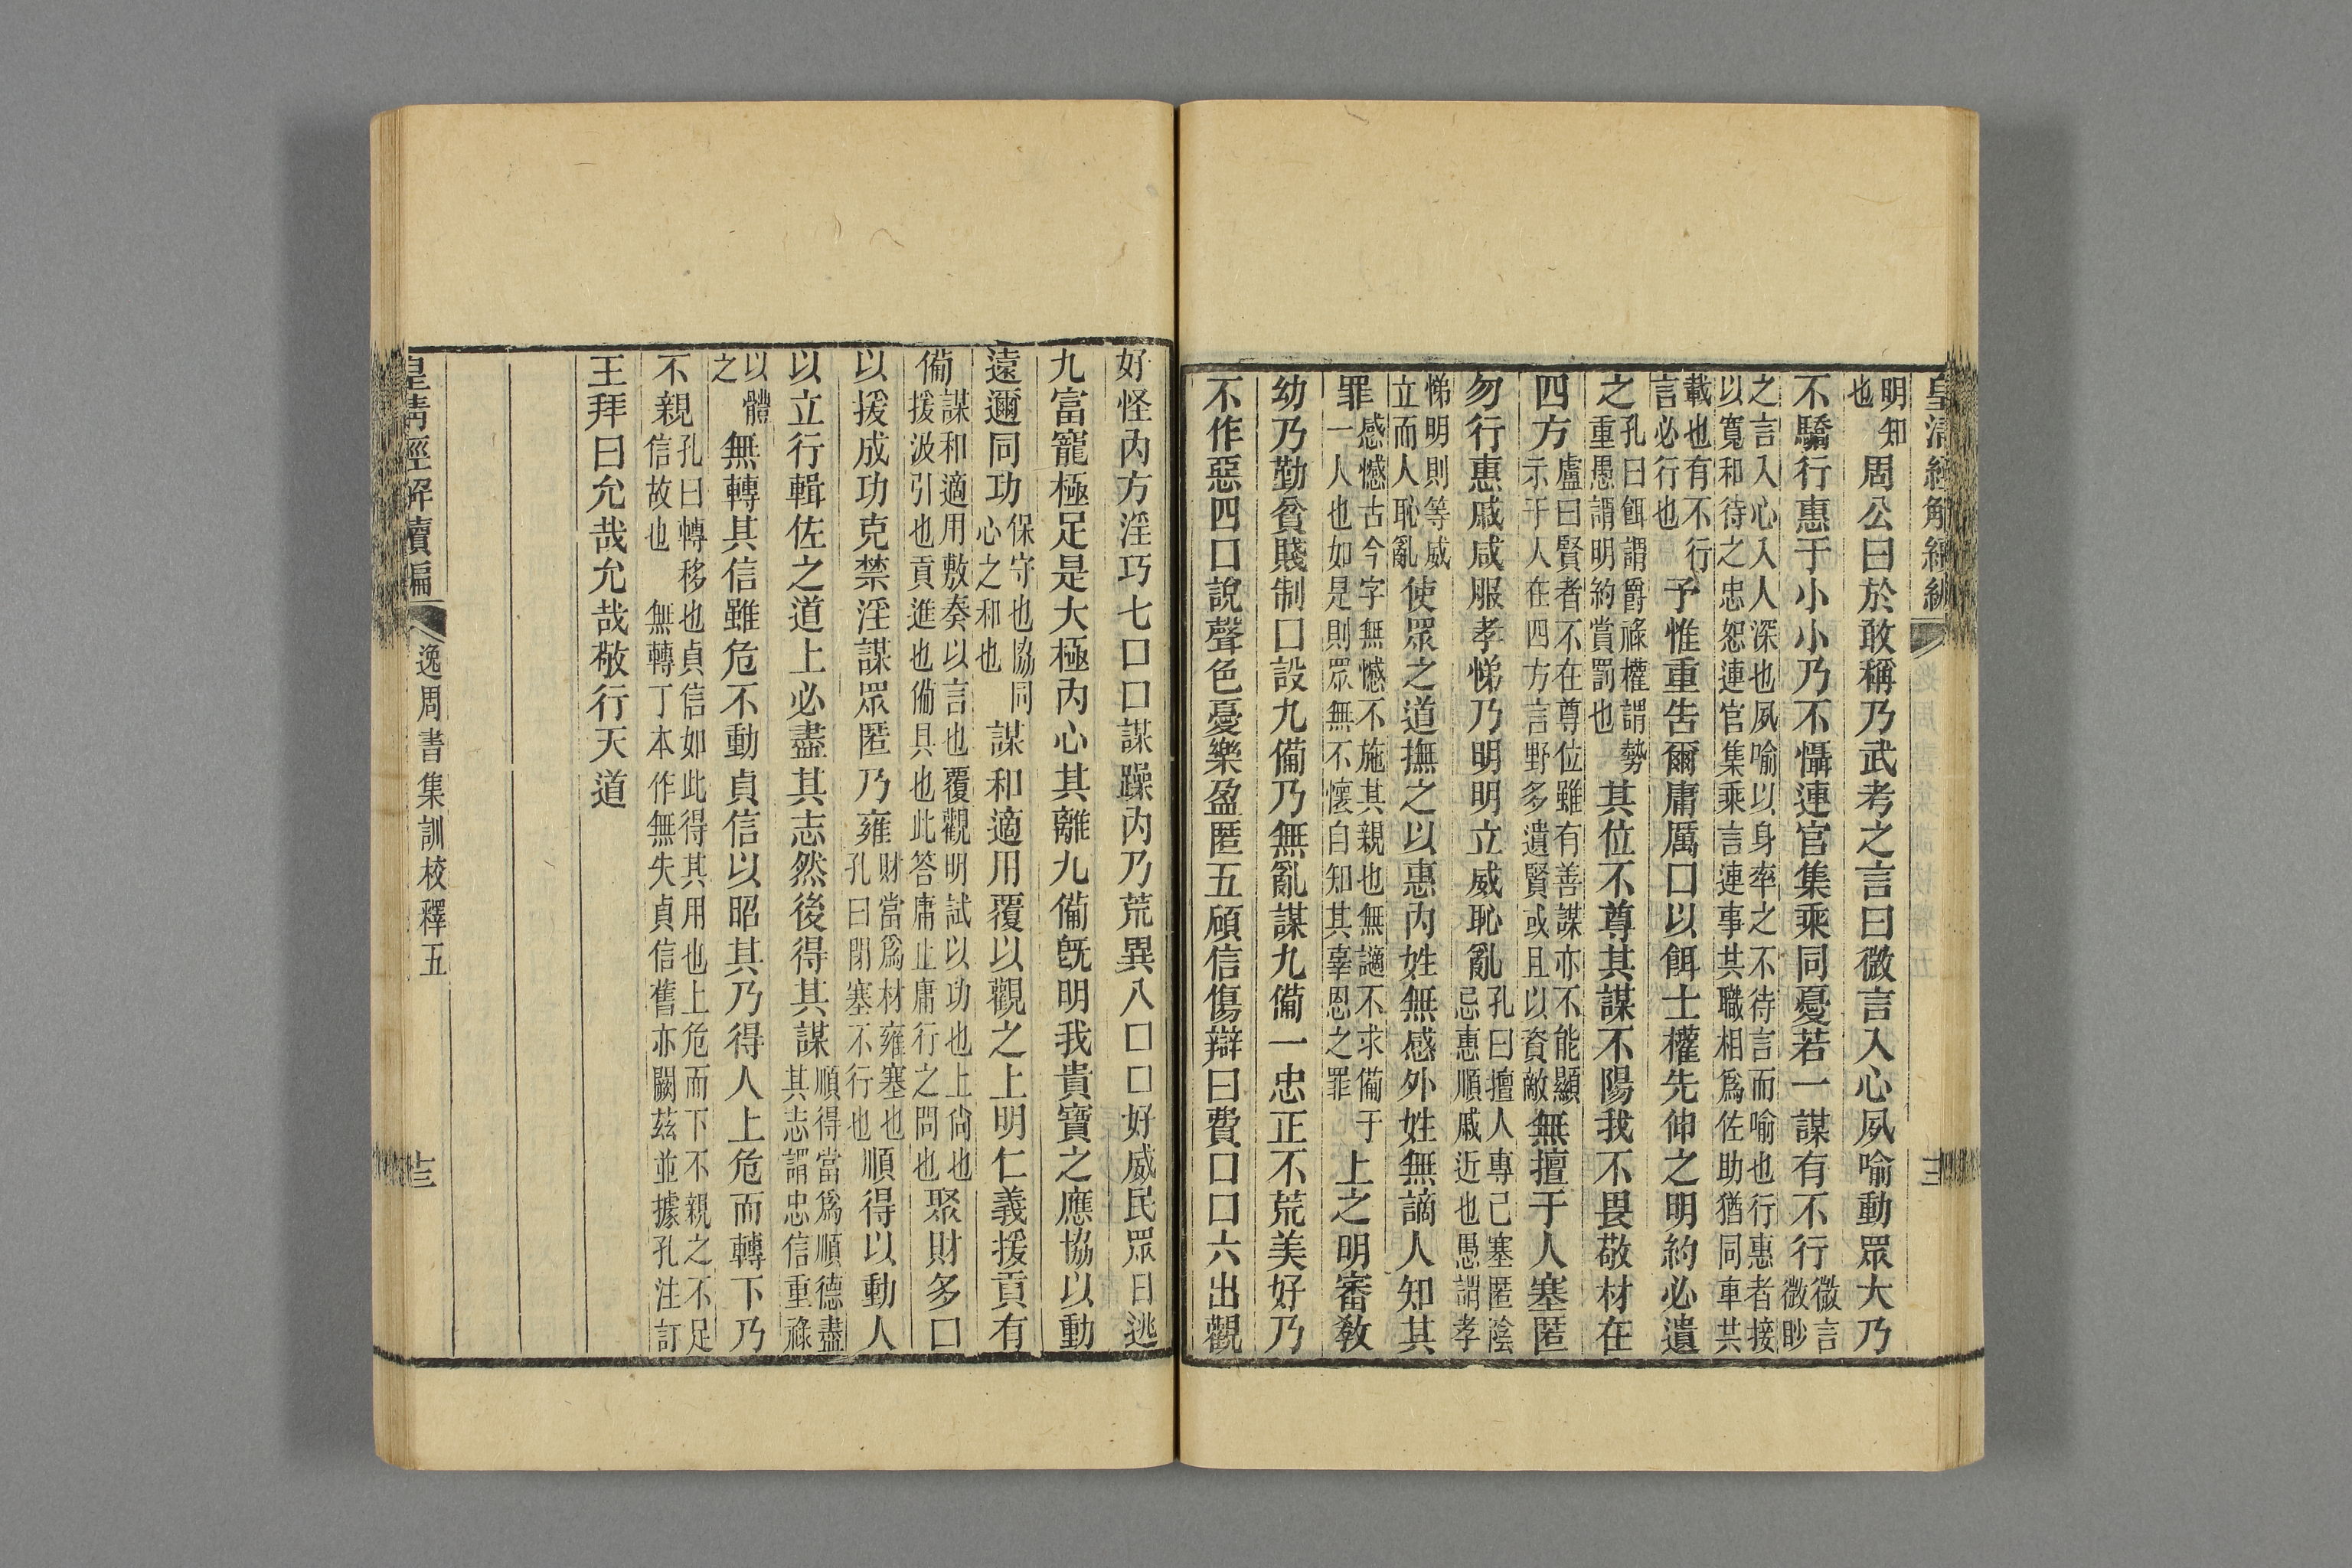 明知也周公曰於敢稱乃武考之言曰微言入心夙喻動眾大乃
不驕行惠于小小乃不懾連官集乘同憂若一謀有不行微言微眇
之言入心入人深也夙喻以身率之不待言而喻也行惠者接以寬和待之忠恕連官集乘言連事其職相為佐助猶同車共
載也有不行言必行也予惟重告爾庸厲口以餌士權先伸之明約必遺
之孔曰餌謂爵祿權謂勢重愚謂明約賞罰也其位不尊其謀不陽我不畏敬材在
四方盧曰賢者不在尊位雖有善謀亦不能顯示于人在四方言野多遺賢或且以資敵無擅于人塞匿
勿行惠戚咸服孝悌乃明明立威恥亂孔曰擅人專己塞匿陰忌惠順戚近也愚謂孝
悌明則等威立而人恥亂使眾之道撫之以惠內姓無感外姓無謫人知其
罪感憾古今字無憾不施其親也無讁不求備于一人也如是則眾無不懷自知其辜恩之罪上之明審教
幼乃勤貧賤制口設九備乃無亂謀九備一忠正不荒美好乃
不作惡四口說聲色憂樂盈匿五碩信傷辯曰費口口六出觀
好怪內方淫巧七口口謀躁內乃荒異八口口好威民眾日逃
九富寵極足是大極內心其離九備既明我貴寶之應協以動
遠邇同功保守也協同心之和也謀和適用覆以觀之上明仁義援貢有
備謀和適用敷奏以言也覆觀明試以功也上尙也援汲引也貢進也備具也此答庸止庸行之問也聚財多口
以援成功克禁淫謀眾匿乃雍財當為材雍塞也孔曰閉塞不行也順得以動人
以立行輯佐之道上必盡其志然後得其謀順得當為順德盡其志謂忠信重祿
以體之無轉其信雖危不動貞信以昭其乃得人上危而轉下乃
不親孔曰轉移也貞信如此得其用也上危而下不親之不足信故也　無轉丁本作無失貞信舊亦闕茲並據孔注訂
王拜曰允哉允哉敬行天道
皇清經解續編
逸周書集訓校釋五